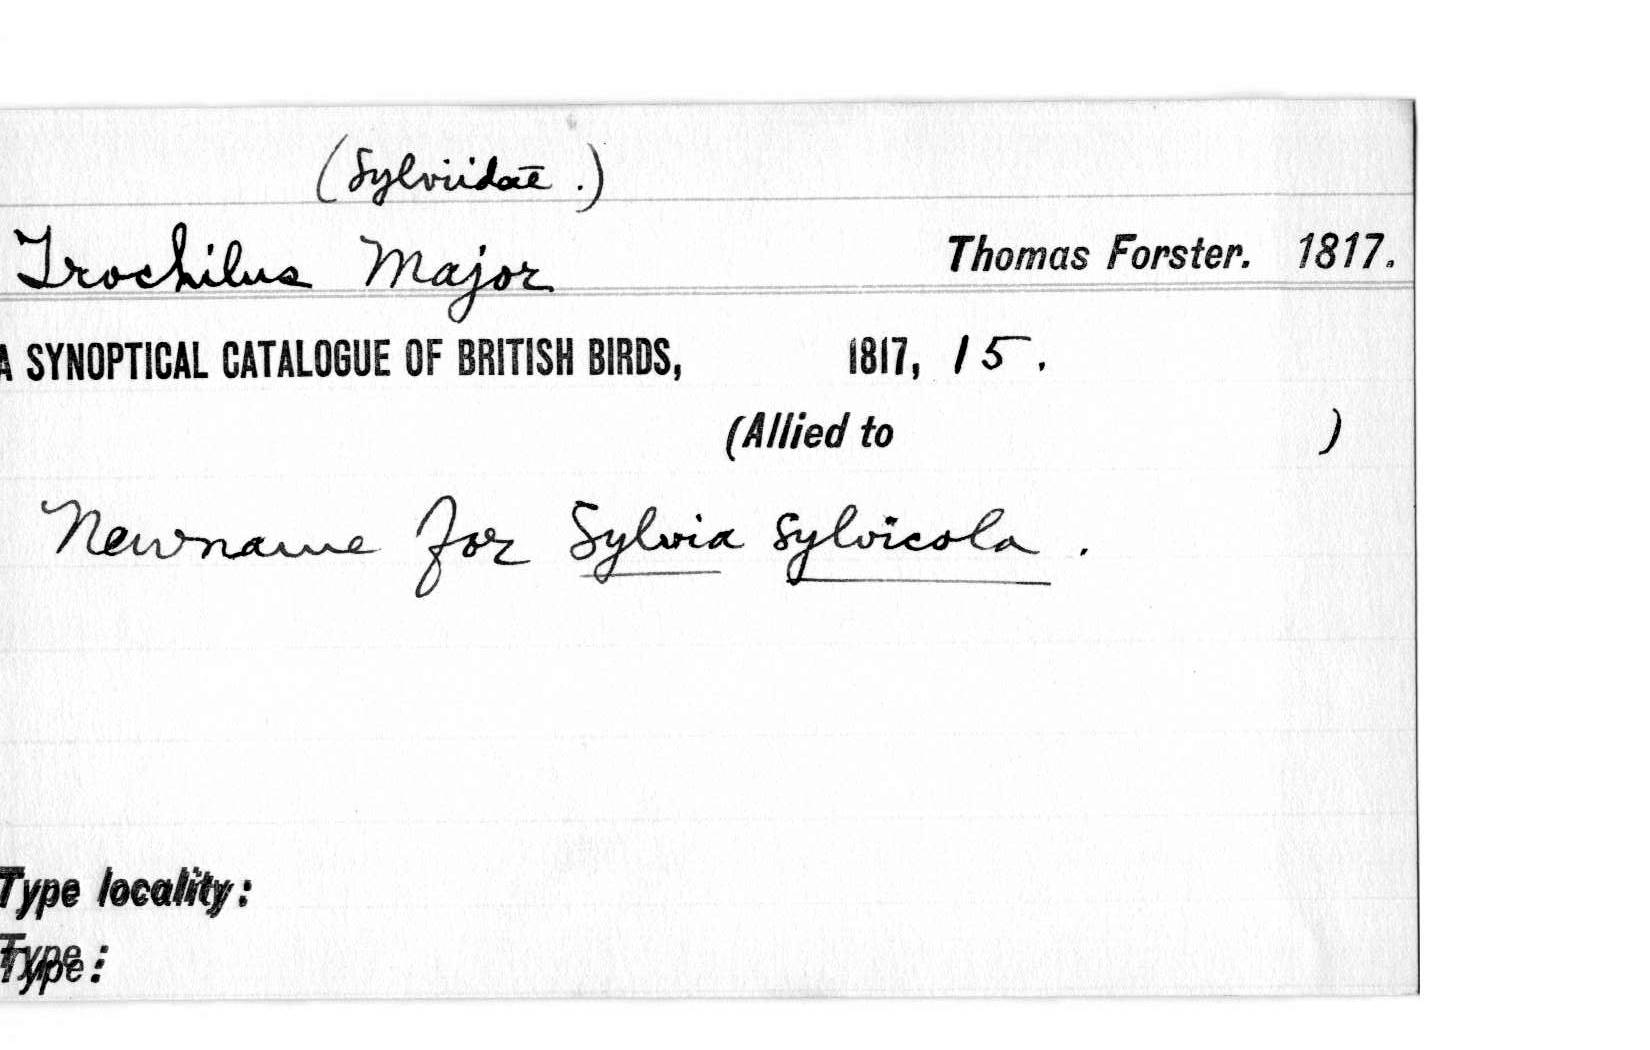 (Sylviidae.)
Trochilus Major Thomas Forster. 1817.
A SYNOPTICAL CATALOGUE OF BRITISH BIRDS, 1817, 15.
(Allied to )
Newname for Sylvia sylvicola.
Type locality:
Type: